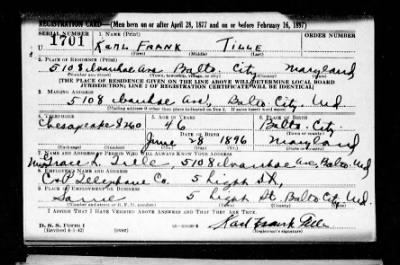 REGISTRATION CARD—(Men born on or after April 28, 1877 and on or before February 16, 1897)
SERIAL NUMBER 1. NAME (Print) ORDER NUMBER
U 1701 KARL FRANK TILLE
(First) (Middle) (Last)
2. PLACE OF RESIDENCE (Print)
5108 Ivanhoe Ave Balto. City Maryland
(Number and street) (Town, township, village, or city) (County) (State)
[THE PLACE OF RESIDENCE GIVEN ON THE LINE ABOVE WILL DETERMINE LOCAL BOARD
JURISDICTION; LINE 2 OF REGISTRATION CERTIFICATE WILL BE IDENTICAL]
3. MAILING ADDRESS
5108 Ivanhoe Ave, Balto. City. Md.
(Mailing address if other than place indicated on line 2. If same insert word same)
4. TELEPHONE 5. AGE IN YEARS 6. PLACE OF BIRTH
Chesapeake 46 Balto. City.
DATE OF BIRTH
June 28 1896 Maryland
(Mo.) (Day) (Yr.) (State or country)
7. NAME AND ADDRESS OF PERSON WHO WILL ALWAYS KNOW YOUR ADDRESS
Mrs Grace Tille, 5108 Ivanhoe Ave, Balto. Md
8. EMPLOYER'S NAME AND ADDRESS
C & P Telephone Co. 5 Light St,
9. PLACE OF EMPLOYMENT OR BUSINESS
Same 5 Light St. Balto City Md.
(Number and street or R. F. D. number) (Town) (County) (State)
I AFFIRM THAT I HAVE VERIFIED ABOVE ANSWERS AND THAT THEY ARE TRUE.
D. S. S. Form 1
(Revised 4-1-42) (over) Karl Frank Tille
(Registrant's signature)